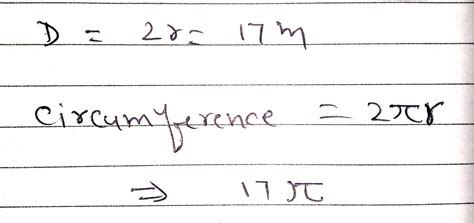 D = 2r = 17 m
Circumference = 2πr
⇒ 17π